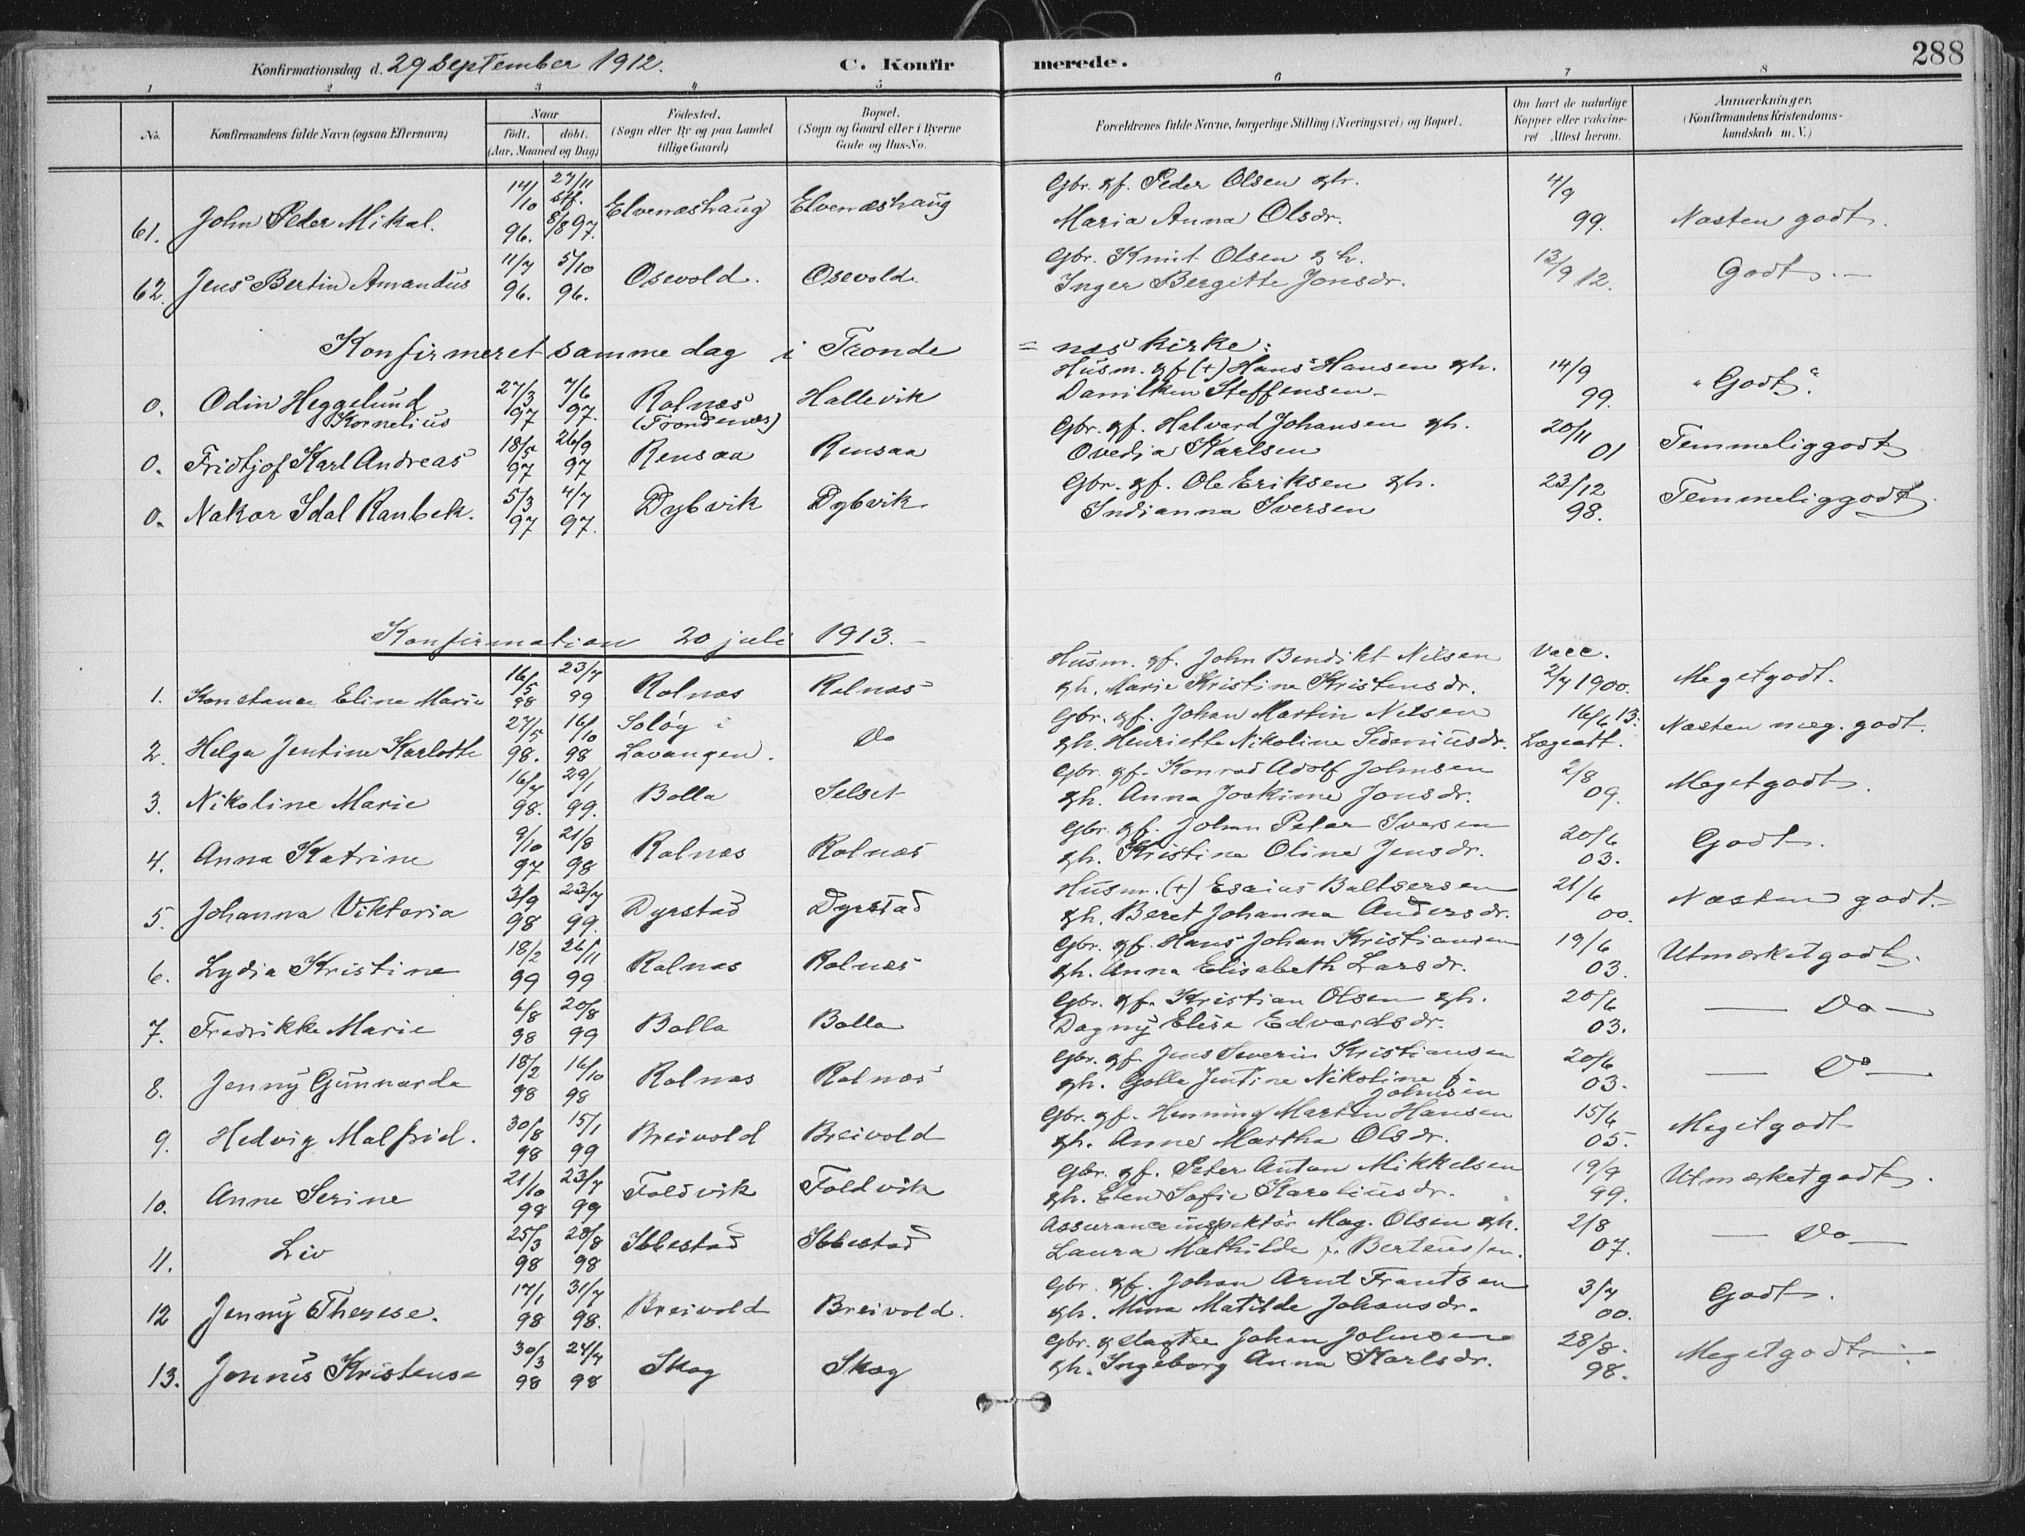 288
Konfirmationsdag d. 29 September 1912.
C. Konfirmerede.
1 2 3 4 5 6 7 8
No.
Konfirmandens fulde Navn (ogsaa Efternavn)
Naar
födt. döbt.
(Aar, Maaned og Dag)
Födested.
(Sogn eller By og paa Landet
tillige Gaard)
Bopæl.
(Sogn og Gaard eller i Byerne
Gade og Hus-No.
Forældrenes fulde Navne, borgerlige Stilling (Næringsvei) og Bopæl.
Om havt de naturlige
Kopper eller vakcine-
ret Attest herom.
Anmærkninger.
(Konfirmandens Kristendoms-
kundskab m. V.)
61. John Peder Mikal. 14/10 96. 27/11 stf. 8/8 97. Elvenæshaug Elvenæshaug
Gbr. gf. Peder Olsen gh.
Maria Anna Olsdr. 4/9 99. Næsten godt.
62. Jens Bertin Amandus 11/7 96. 5/10 96. Osevold. Osevold.
Gbr. Knut Olsen g h.
Inger Bergitte Jonsdr. 13/9 12. Godt. —
Konfirmeret samme dag i Tronde = næs kirke:
0. Odin Heggelund Kornelius 27/3 97 7/6 97. Rolnæs (Trondenæs) Hallevik
Husm. gf (+) Hans Hansen gh.
Danilken Steffensen – 14/9 99. "Godt."
0. Fridtjof Karl Andreas 18/5 97 26/9 97 Rensaa Rensaa
Gbr. gf. Halvard Johansen gh.
Ovedia Karlsen 20/11 01 Temmelig godt
0. Nakor Idal Ranbek. 5/3 97 4/7 97. Dybvik Dybvik
Gbr. gf. Ole Eriksen gh.
Indianna Iversen 23/12 98. Temmelig godt.
Konfirmation 20 juli 1913. –
1. Konstance Eline Marie 16/5 98 23/7 99 Rolnæs Rolnæs
Husm. gf. John Bendikt Nilsen
gh. Marie Kristine Kristensdr. Vacc. 2/7 1900. Meget godt.
2. Helga Jentine Karlotte 27/5 98. 16/10 98 Soløy i Lavangen. Do
Gbr. gf. Johan Martin Nilsen
gh. Henriette Nikoline Sideniusdr. 16/6 13. Lægeatt. Næsten meg. godt.
3. Nikoline Marie 16/7 98. 29/1 99. Bolla Selset
Gbr. gf. Konrad Adolf Johnsen
gh. Anna Joakime Jonsdr. 2/8 09. Meget godt.
4. Anna Katrine 9/10 97 21/8 98 Rolnæs Rolnæs
Gbr. gf. Johan Peter Iversen
gh. Kristine Oline Jensdr. 20/6 03. Godt.
5. Johanna Viktoria 3/9 98 23/7 99. Dyrstad Dyrstad
Husm. (+) Esaias Baltsersen
gh. Beret Johanna Andersdr. 21/6 00. Næsten godt. –
6. Lydia Kristine 18/2 99 26/11 99 Rolnæs Rolnæs
Gbr. gf. Hans Johan Kristiansen
gh. Anna Elisabeth Larsdr. 19/6 03. Utmærket godt.
7. Fredrikke Marie 6/8 98 20/8 99 Bolla Bolla
Gbr. gf. Kristian Olsen gh.
Dagny Elise Edvardsdr. 20/6 03. — Do —
8. Jenny Gunnarda 18/2 98 16/10 98 Rolnæs Rolnæs
Gbr. gf. Jens Severin Kristiansen
gh. Golla Jentine Nikoline f. Johnsen 20/6 03. — Do —
9. Hedvig Malfrid. 30/8 98 15/1 99 Breivold Breivold
Gbr. gf. Henning Martin Hansen
gh. Anne Martha Olsdr. 15/6 05. Meget godt
10. Anne Serine 21/10 98 23/7 99 Foldvik Foldvik
Gbr. gf. Peter Anton Mikkelsen
gh. Elen Sofie Kareliusdr. 19/9 99. Utmærket godt.
11. Liv 25/3 98 28/8 98 Ibbestad Ibbestad
Assuranceinspektør Mag. Olsen gh.
Laura Mathilde f. Berteussen. 2/8 07. — Do —
12 Jenny Therese. 17/1 98 31/7 98. Breivold Breivold.
Gbr. gf. Johan Arnt Frantsen
gh. Mina Matilde Johansdr. 3/7 00. Godt.
13. Jennis Kristense 30/3 98 24/7 98 Skog Skog
Gbr. g slagter Johan Johnsen
gh. Ingeborg Anna Karlsdr. 28/8. 98. Meget godt